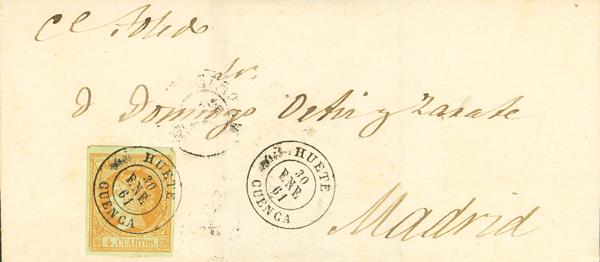 C C Toledo
Sr.
D Domingo Ortiz y Zarate
Madrid
HUETE
30
ENE
61
CUENCA
4 CUARTOS.
HUETE
30
ENE
61
CUENCA